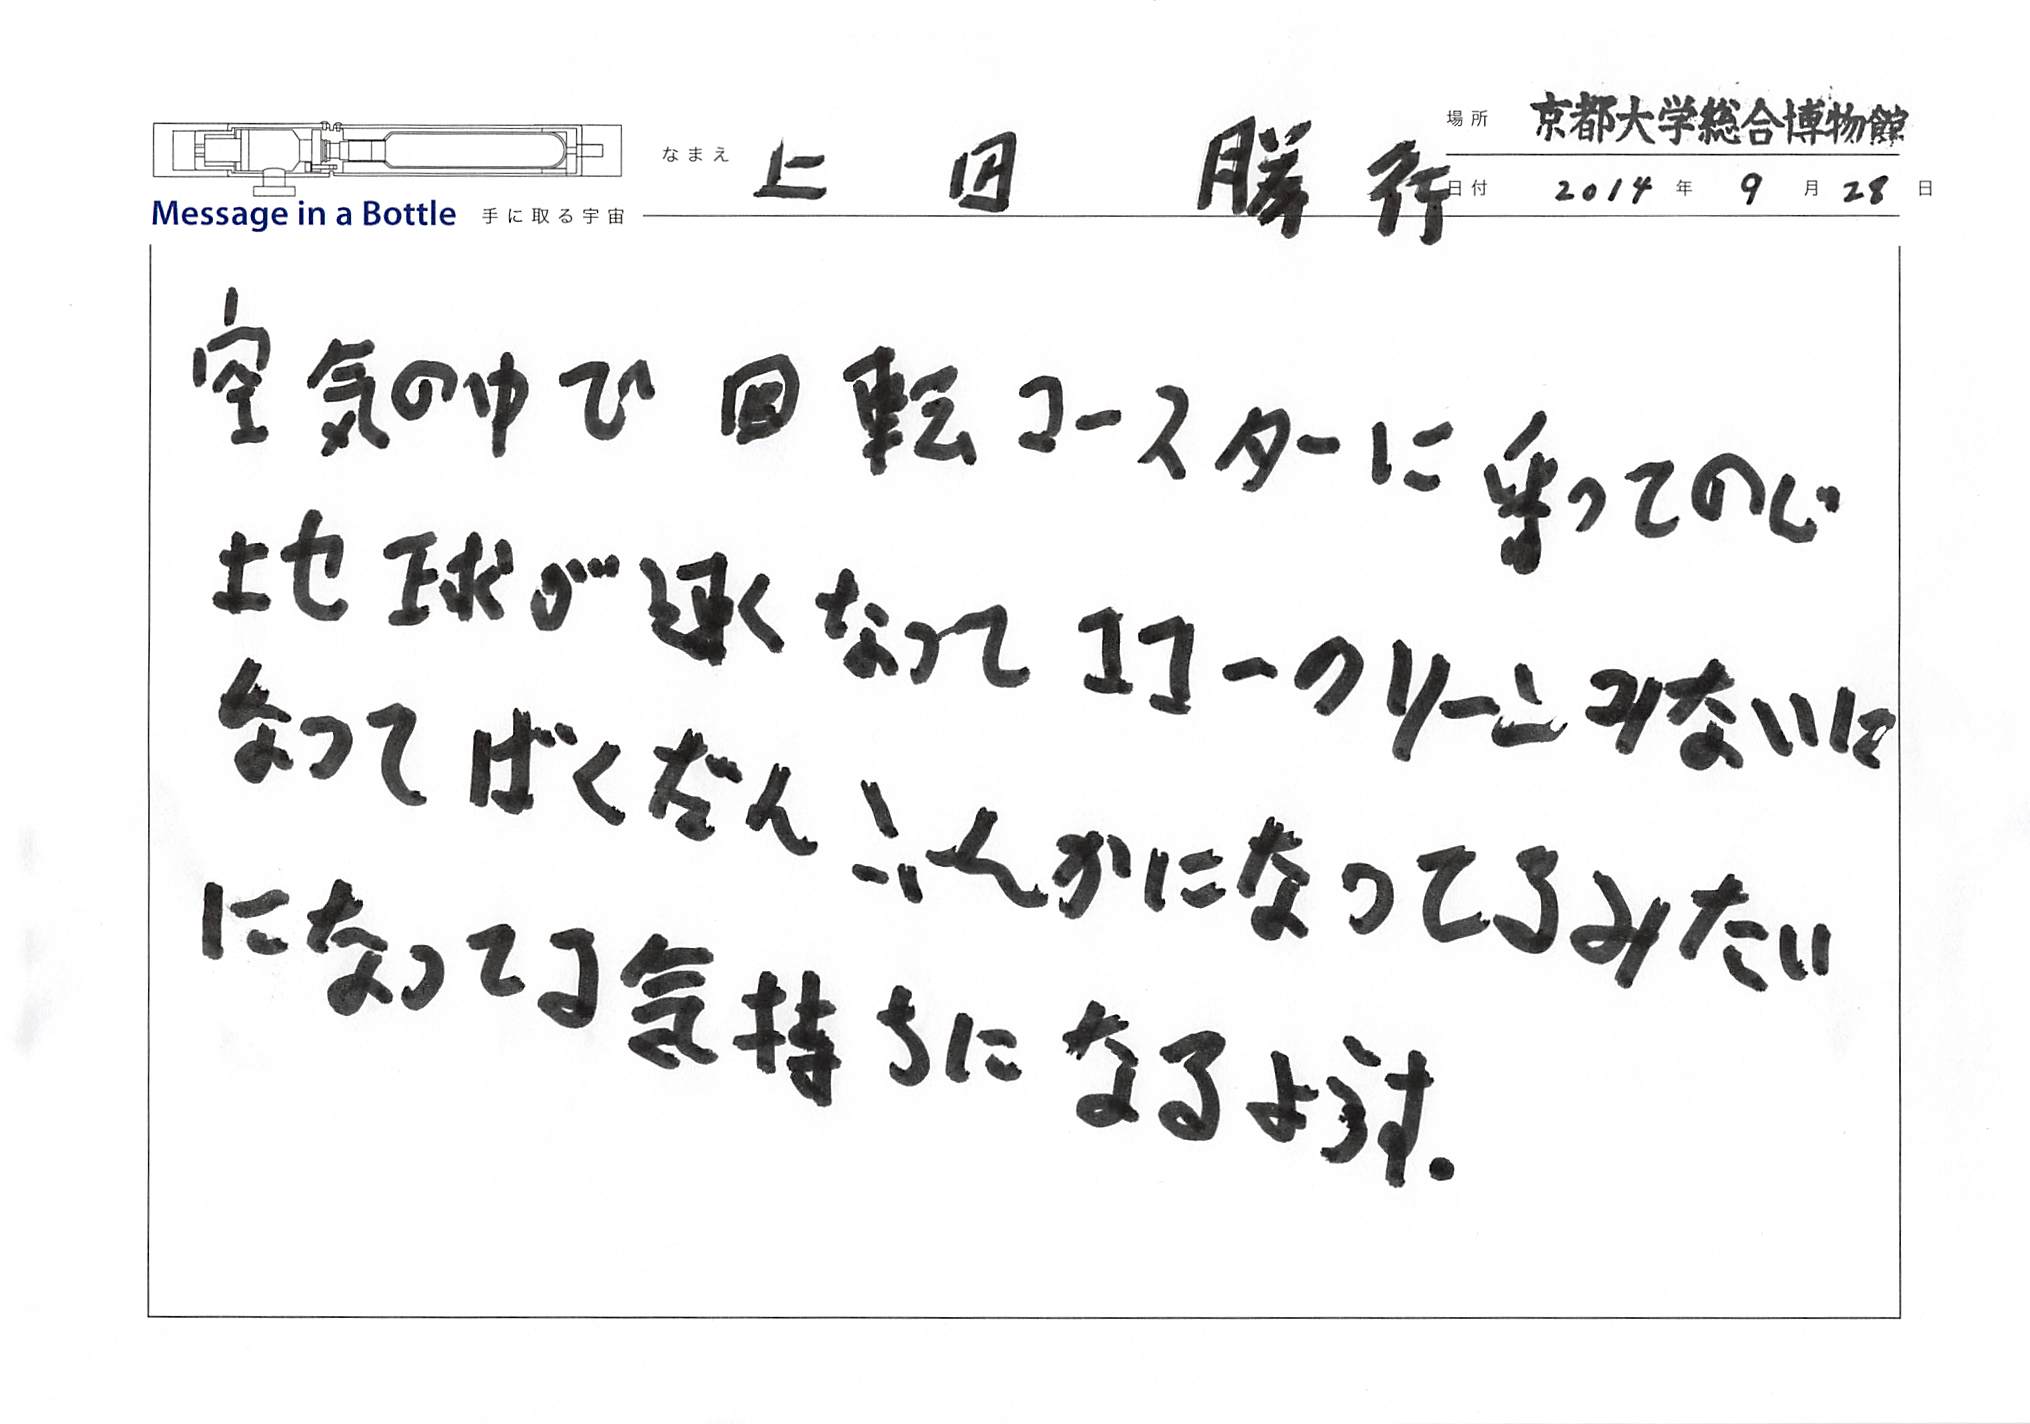 場所 京都大学総合博物館
なまえ 上田 勝行
日付 2014 年 9 月 28 日
Message in a Bottle 手に取る宇宙
空気の中で 回転コースターに 乗ってのじ
地球が速くなって エコークリーンみないに
なって ばくだん ふんかになってるみたい
になってる気持ちになるようす.